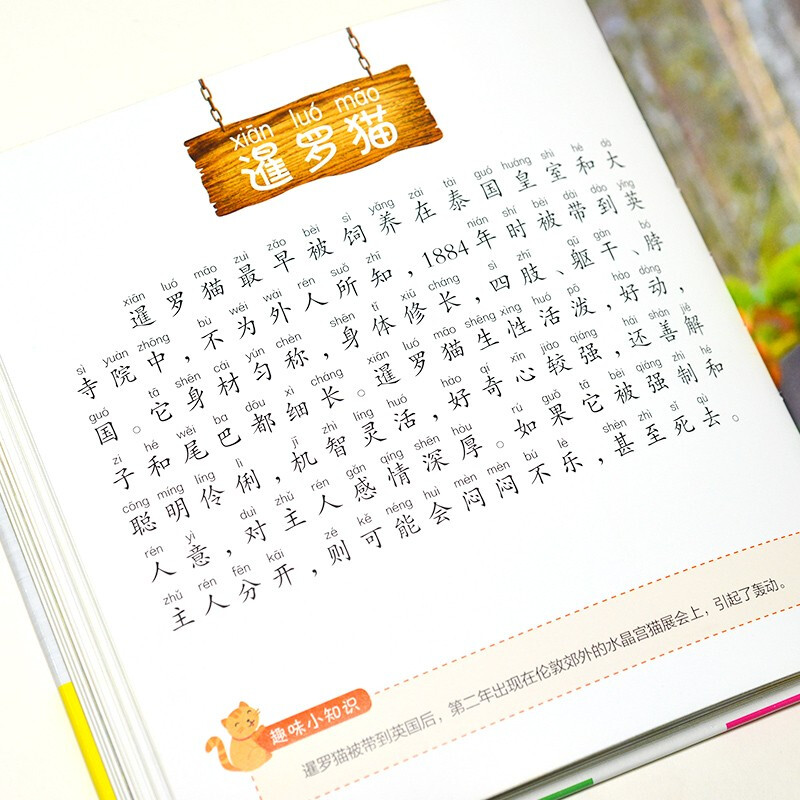 xiān luó māo
暹罗猫
xiān luó māo zuì zǎo bèi sì yǎng zài tài guó huáng shì hé dà
暹罗猫最早被饲养在泰国皇室和大
sì yuàn zhōng bù wéi wài rén suǒ zhī nián shí bèi dài dào yīng
寺院中，不为外人所知，1884年时被带到英
guó tā shēn cái yún chèn shēn tǐ xiū cháng sì zhī qū gàn bó
国。它身材匀称，身体修长，四肢、躯干、脖
zi hé wěi ba dōu xì cháng xiān luó māo shēng xìng huó pō hào dòng
子和尾巴都细长。暹罗猫生性活泼，好动，
cōng míng líng lì jī zhì líng huó hào qí xīn jiào qiáng hái shàn jiě
聪明伶俐，机智灵活，好奇心较强，还善解
rén yì duì zhǔ rén gǎn qíng shēn hòu rú guǒ tā bèi qiáng zhì hé
人意，对主人感情深厚。如果它被强制和
zhǔ rén fēn kāi zé kě néng huì mèn mèn bú lè shèn zhì sǐ qù
主人分开，则可能会闷闷不乐，甚至死去。
趣味小知识
暹罗猫被带到英国后，第二年出现在伦敦郊外的水晶宫猫展会上，引起了轰动。